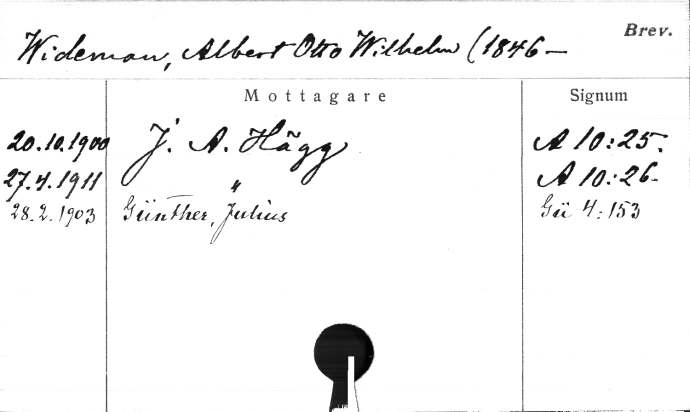 Brev.
Wideman, Albert Otto Wilhelm (1846 —
Mottagare Signum
20.10.1900 J. A. Hägg A 10:25.
27.4.1911 " A 10:26-
28.2.1903 Günther, Julius Gü 4:153